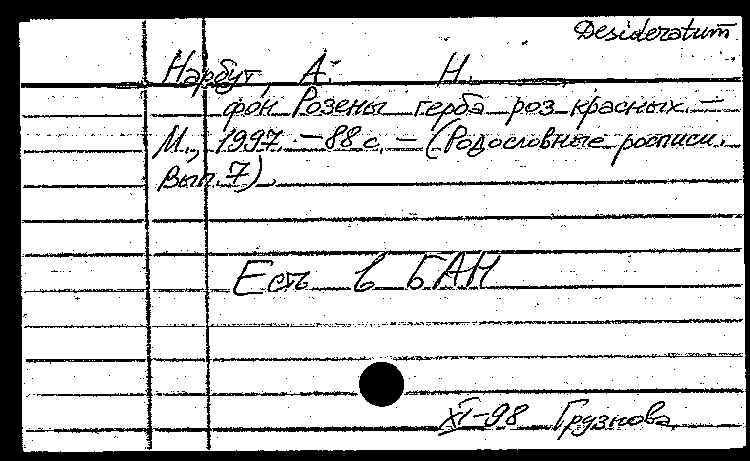 Desideratum
Нарбут, А. Н.
фон Розены герба роз красных. –
М., 1997. – 88 с. – (Родословные росписи.
Вып. 7).
Есть в БАН
XI-98 Грузнова